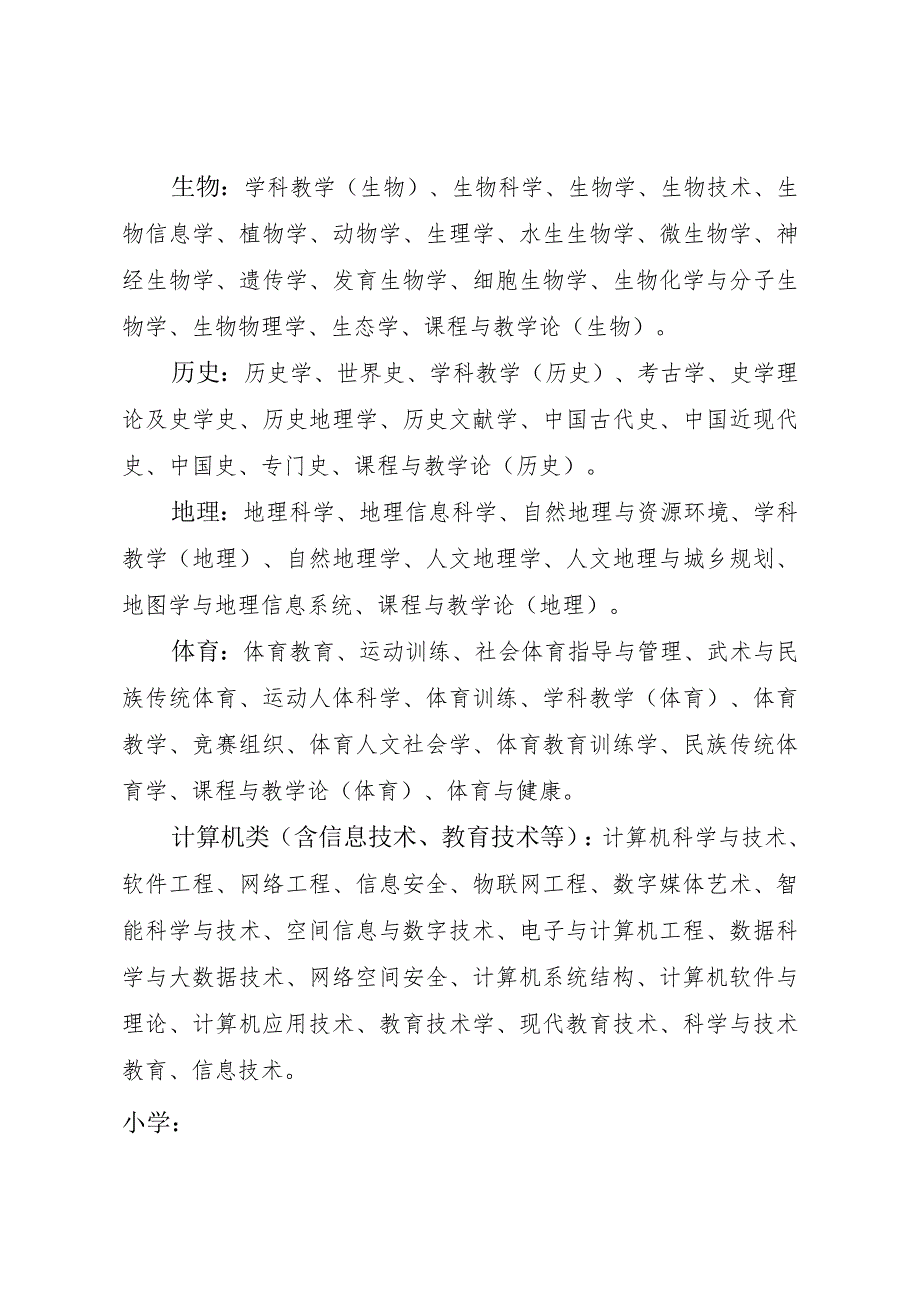 生物：学科教学（生物）、生物科学、生物学、生物技术、生
物信息学、植物学、动物学、生理学、水生生物学、微生物学、神
经生物学、遗传学、发育生物学、细胞生物学、生物化学与分子生
物学、生物物理学、生态学、课程与教学论（生物）。
历史：历史学、世界史、学科教学（历史）、考古学、史学理
论及史学史、历史地理学、历史文献学、中国古代史、中国近现代
史、中国史、专门史、课程与教学论（历史）。
地理：地理科学、地理信息科学、自然地理与资源环境、学科
教学（地理）、自然地理学、人文地理学、人文地理与城乡规划、
地图学与地理信息系统、课程与教学论（地理）。
体育：体育教育、运动训练、社会体育指导与管理、武术与民
族传统体育、运动人体科学、体育训练、学科教学（体育）、体育
教学、竞赛组织、体育人文社会学、体育教育训练学、民族传统体
育学、课程与教学论（体育）、体育与健康。
计算机类（含信息技术、教育技术等）：计算机科学与技术、
软件工程、网络工程、信息安全、物联网工程、数字媒体艺术、智
能科学与技术、空间信息与数字技术、电子与计算机工程、数据科
学与大数据技术、网络空间安全、计算机系统结构、计算机软件与
理论、计算机应用技术、教育技术学、现代教育技术、科学与技术
教育、信息技术。
小学：